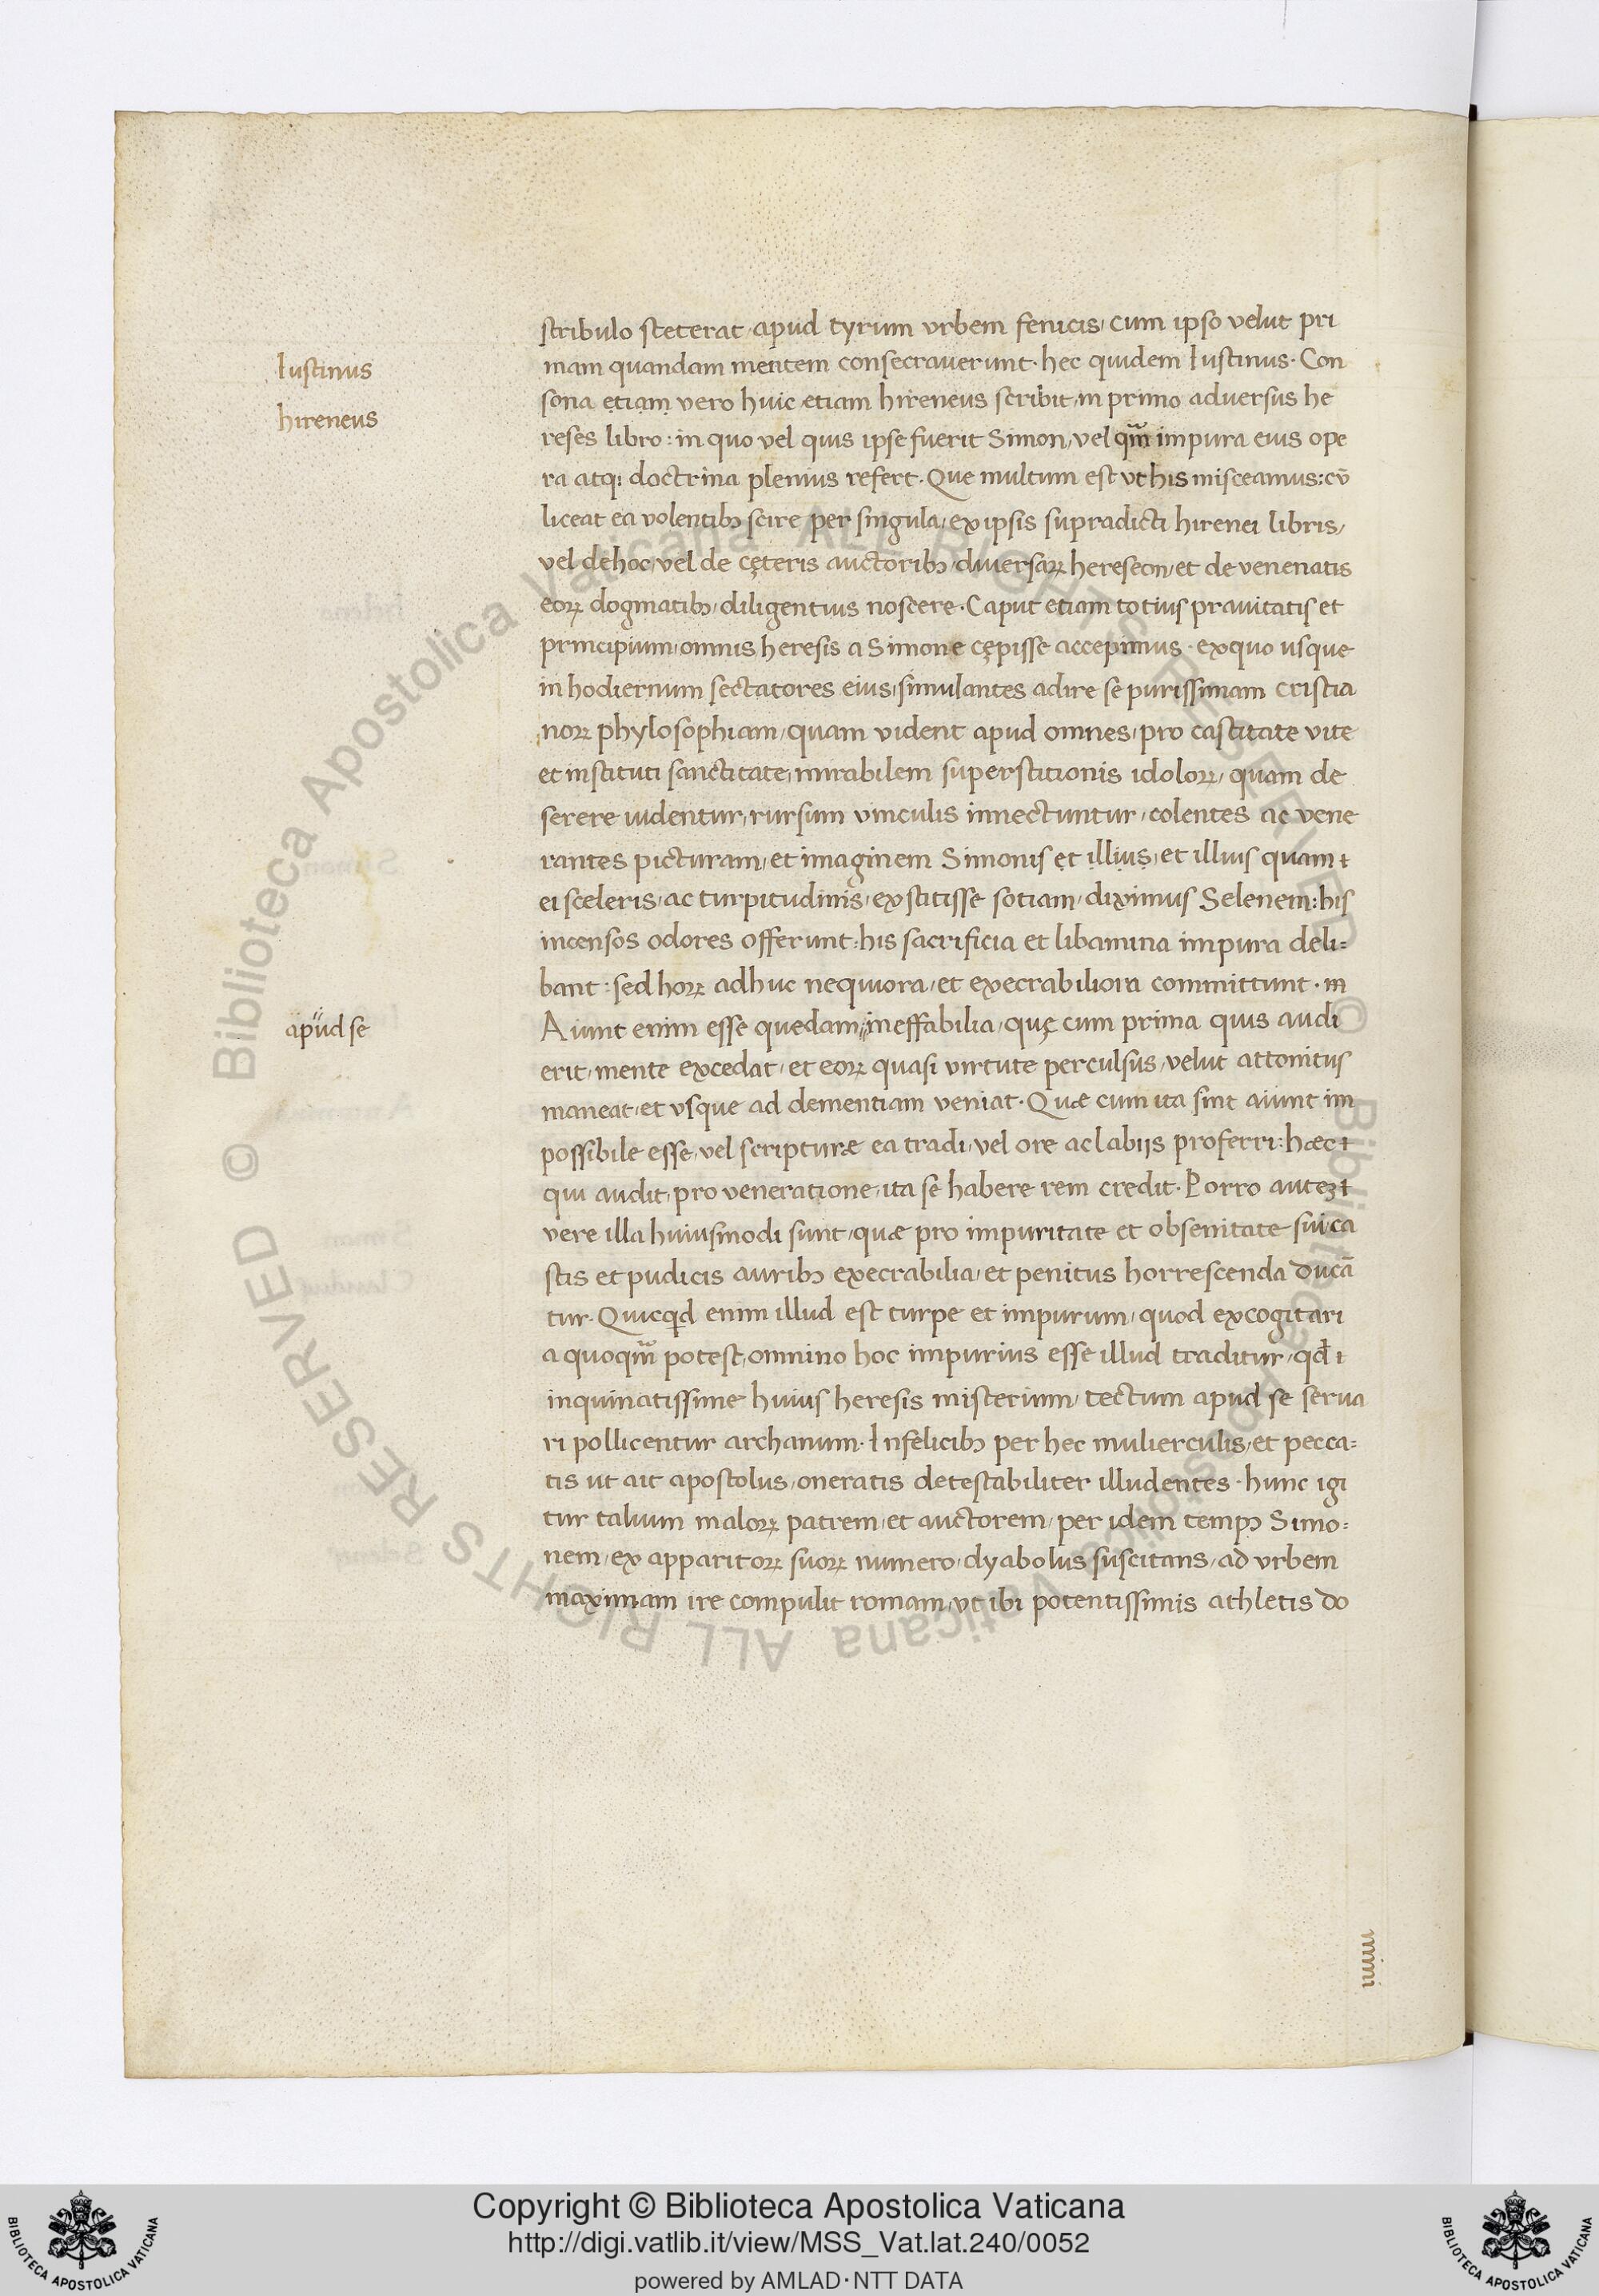 Iustinus
hireneus
apud se
stribulo steterat, apud tyrum urbem fenicis, cum ipso velut pri
mam quandam mentem consecraverunt. hec quidem Iustinus. Con
sona etiam vero huic etiam hireneus scribit, in primo adversus he
reses libro: in quo vel quis ipse fuerit Simon, vel qm̃ impura eius ope
ra atq; doctrina plenius refert. Que multum est ut his misceamus: cū
liceat ea volentibꝫ scire per singula, ex ipsis supradicti hirenei libris,
vel de hoc, vel de cęteris auctoribꝫ, diversaꝝ hereseon, et de venenatis
eoꝝ dogmatibꝫ, diligentius noscere. Caput etiam totius pravitatis et
principium, omnis heresis a Simone cępisse accepimus. ex quo usque
in hodiernum sectatores eius, simulantes adire se purissimam cristia
noꝝ phylosophiam, quam vident apud omnes, pro castitate vite
et instituti sanctitate, mirabilem superstitionis idoloꝝ, quam de
serere videntur, rursum vinculis innectuntur, colentes ac vene
rantes picturam, et imaginem Simonis et illius, et illius quam
ei sceleris, ac turpitudinis, exstitisse sotiam, diximus Selenem: his
incensos odores offerunt: his sacrificia et libamina impura deli=
bant: sed hoꝝ adhuc nequiora, et execrabiliora committunt. in
Aiunt enim esse quedam, ineffabilia, quę cum prima quis audi
erit, mente excedat, et eoꝝ quasi virtute perculsus, velut attonitus
maneat, et usque ad dementiam veniat. Quæ cum ita sint aiunt im
possibile esse, vel scripturæ ea tradi, vel ore ac labijs proferri: hæc
qui audit, pro veneratione, ita se habere rem credit. Porro auteꝫ
vere illa huiusmodi sunt, quæ pro impuritate et obsenitate sui ca
stis et pudicis auribꝫ execrabilia, et penitus horrescenda ducā
tur. Quicqd enim illud est turpe et impurum, quod excogitari
a quoqm̃ potest, omnino hoc impurius esse illud traditur, qd̄
inquinatissime huius heresis misterium, tectum apud se serva
ri pollicentur archanum. Infelicibꝫ per hec mulierculis, et pecca=
tis ut ait apostolus, oneratis detestabiliter illudentes. hunc igi
tur talium maloꝝ patrem, et auctorem, per idem tempꝫ Simo=
nem, ex apparitoꝝ suoꝝ numero, dyabolus suscitans, ad urbem
maximam ire compulit romam, ut ibi potentissimis athletis do
© Biblioteca Apostolica Vaticana ALL RIGHTS RESERVED
© Biblioteca Apostolica Vaticana ALL RIGHTS RESERVED
Copyright © Biblioteca Apostolica Vaticana
http://digi.vatlib.it/view/MSS_Vat.lat.240/0052
powered by AMLAD·NTT DATA
BIBLIOTECA APOSTOLICA VATICANA
BIBLIOTECA APOSTOLICA VATICANA